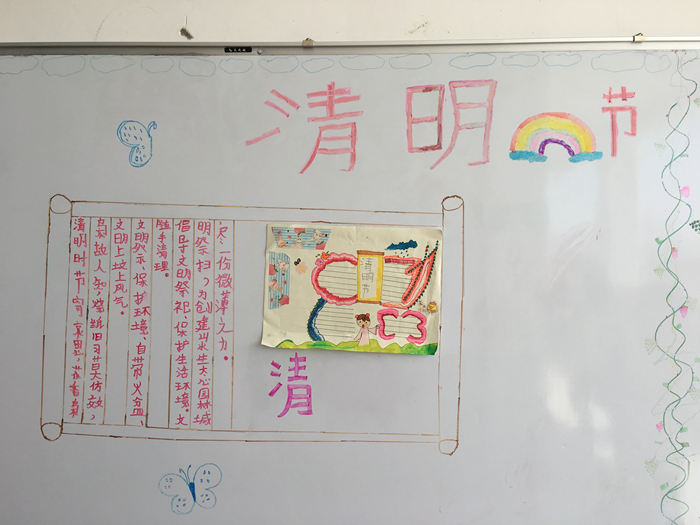 清明节
清明时节寄哀思，花香果
奠故人勿烧纸旧习莫仿效，
文明上坟上风气。
文明祭示，保护环境，自带火盆，
随手清理。
倡导文明祭祀，保护生活环境。文
明祭扫，为创建山水生态园林城
尽一份微薄之力。
清明节
清